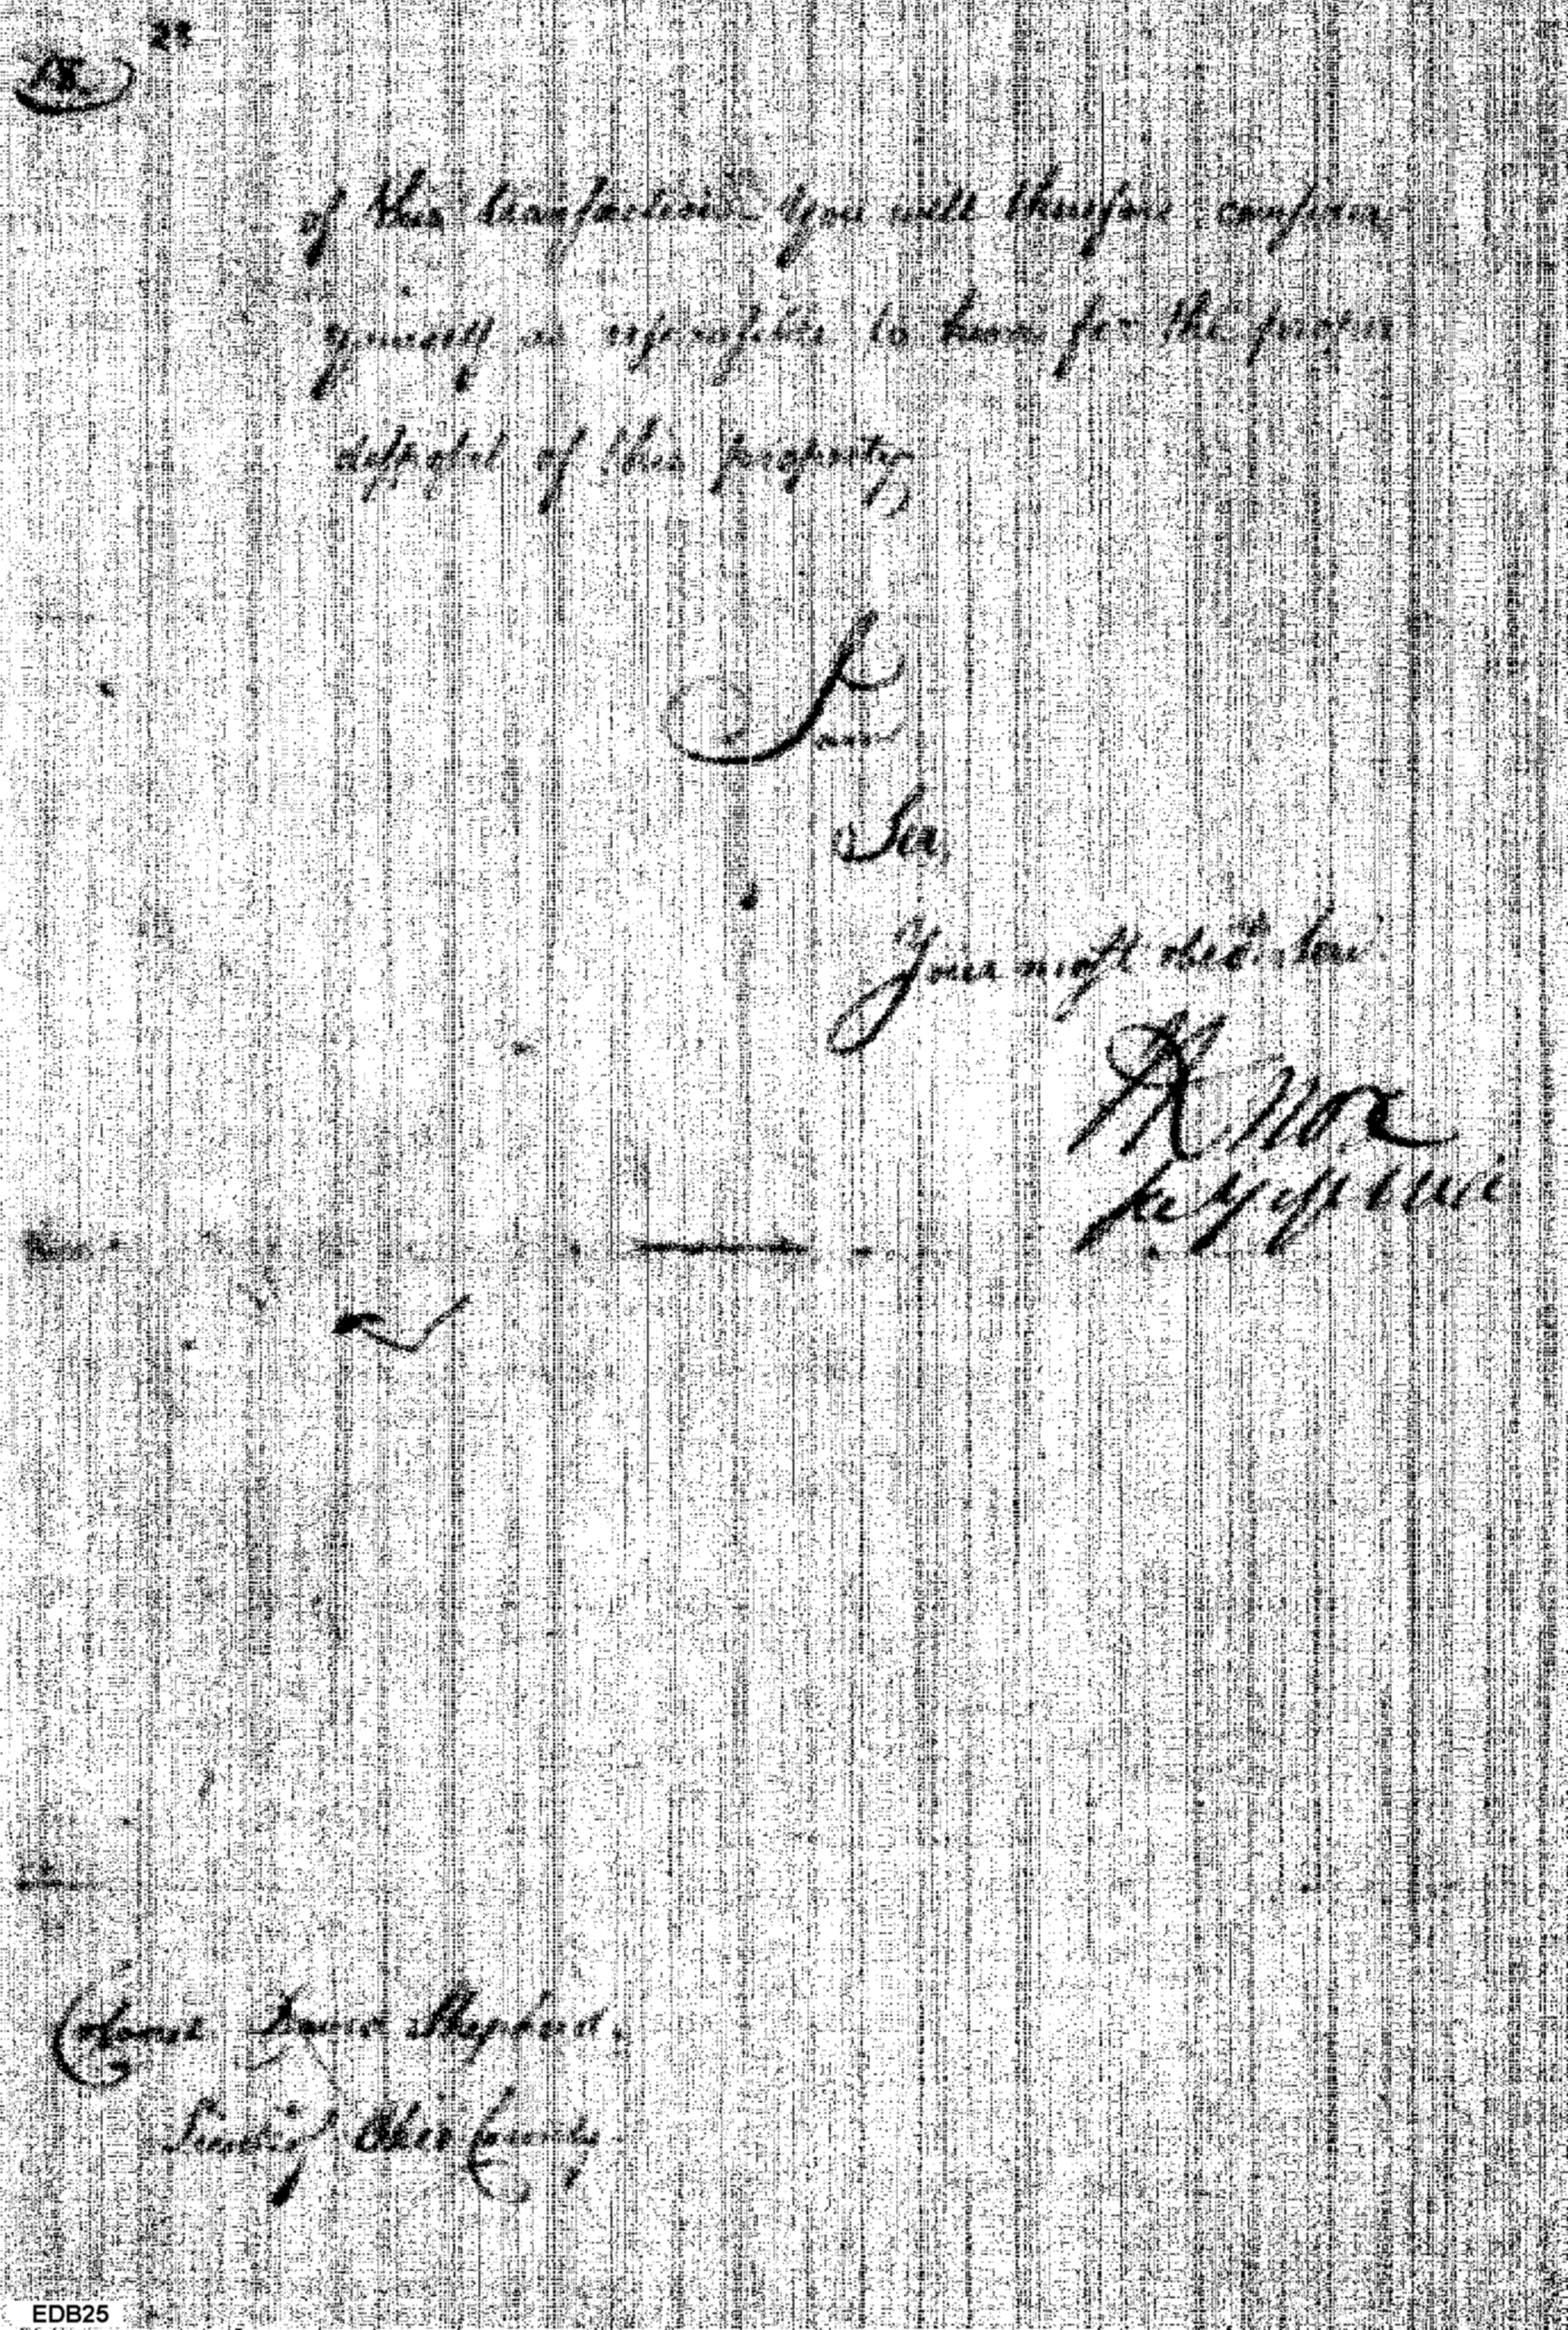 28
of this transaction You will therefore consider
yourself as responsible to him for the proper
disposal of this property
I am
Sir,
Your most obed. serv.
H Knox
Secy of War
Colonel David Shepherd.
Ohio County.
EDB25